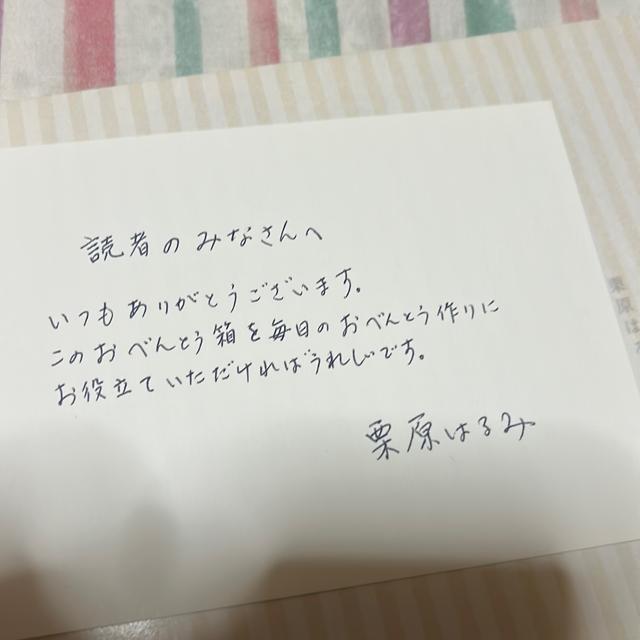 読者のみなさんへ
いつもありがとうございます。
このおべんとう箱を毎日のおべんとう作りに
お役立ていただければうれしいです。
栗原はるみ
栗原は